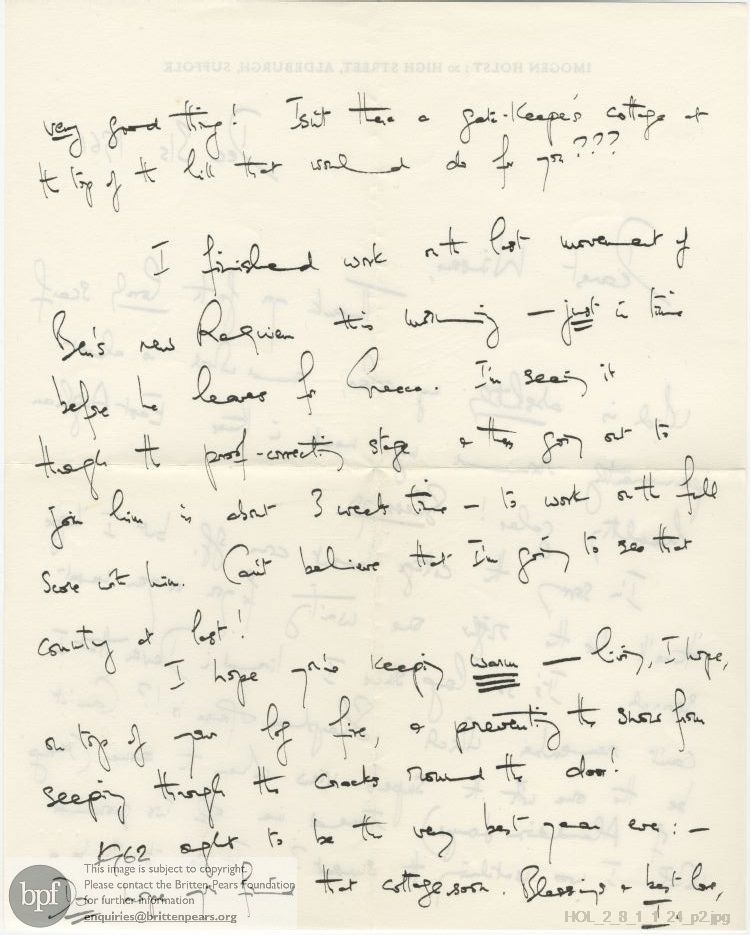 IMOGEN HOLST : 20 HIGH STREET, ALDEBURGH, SUFFOLK
very good thing! Isn't there a gate-keeper's cottage at
the top of the hill that would do for you???
I finished work on the last movement of
Ben's new Requiem this morning – just in time
before he leaves for Greece. I'm seeing it
through the proof-correcting stage & then going out to
join him in about 3 weeks time – to work on the full
score with him. Can't believe that I'm going to see that
country at last!
I hope you're keeping warm – living, I hope,
on top of your log fire, & preventing the snow from
seeping through the cracks round the door!
1962 ought to be the very best year ever: –
that cottage soon. Blessings & best love,
I.
bpf
This image is subject to copyright.
Please contact the Britten-Pears Foundation
for further information
enquiries@brittenpears.org
HOL_2_8_1_1_24_p2.jpg